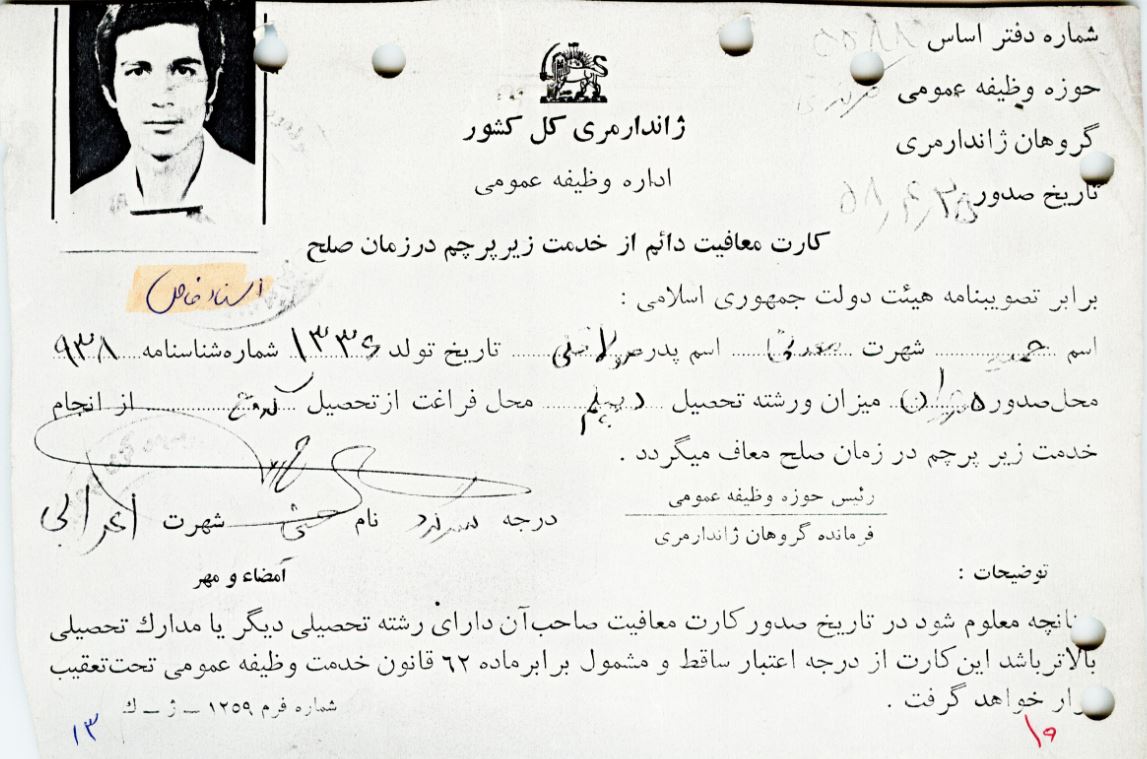 شماره دفتر اساس
حوزه وظیفه عمومی
ژاندارمری کل کشور
گروهان ژاندارمری
اداره وظیفه عمومی
تاریخ صدور ۵۸/۴/۲۵
کارت معافیت دائم از خدمت زیرپرچم درزمان صلح
اسناد خاص
برابر تصویبنامه هیئت دولت جمهوری اسلامی :
اسم حمید شهرت اسم پدر تاریخ تولد ۱۳۳۶ شماره شناسنامه ۹۳۸
محل صدور تهران میزان ورشته تحصیل دیپلم محل فراغت ازتحصیل کرج از انجام
خدمت زیر پرچم در زمان صلح معاف میگردد .
رئیس حوزه وظیفه عمومی
فرمانده گروهان ژاندارمری
درجه نام شهرت اعرابی
آمضاء و مهر
توضیحات :
چنانچه معلوم شود در تاریخ صدور کارت معافیت صاحب آن دارای رشته تحصیلی دیگر یا مدارك تحصیلی
بالاتر باشد این کارت از درجه اعتبار ساقط و مشمول برابرماده ۶۲ قانون خدمت وظیفه عمومی تحت تعقیب
قرار خواهد گرفت .
شماره فرم ۱۲۵۹ – ژ – ك
۱۳
۱۰